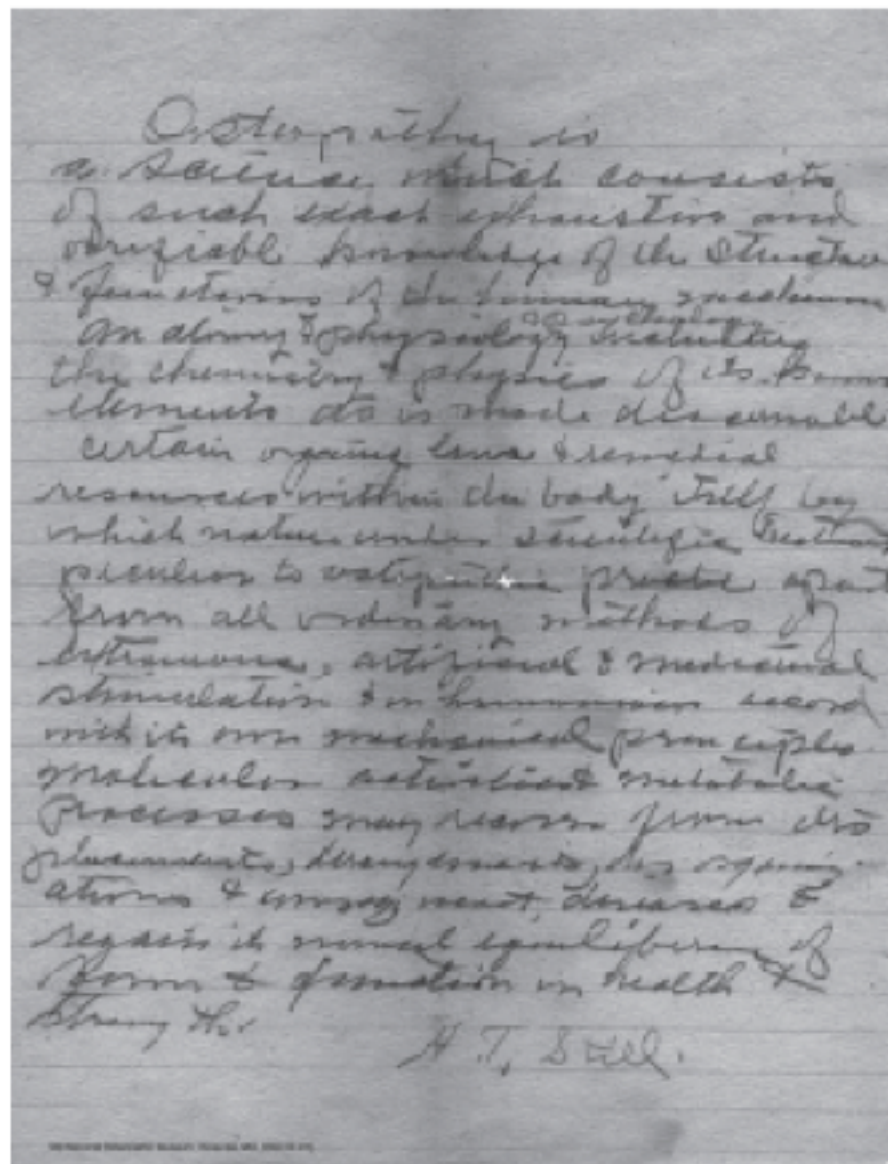 Osteopathy is
a science which consists
of such exact exhaustive and
verifiable knowledge of the structure
& functions of the human mechanism
anatomy & physiology & psychology including
the chemistry & physics of its known
elements as is made discernable
certain organic laws & remedial
resources within the body itself by
which nature under scientific treatment
peculiar to osteopathic practice apart
from all ordinary methods of
extraneous, artificial & medicinal
stimulation & in harmonious accord
with its own mechanical principles
molecular activities & metabolic
processes may recover from dis
placements, derangements, dis organiz-
ations & consequent diseases &
regain its normal equilibrium of
form & function in health &
strength.
A. T. Still.